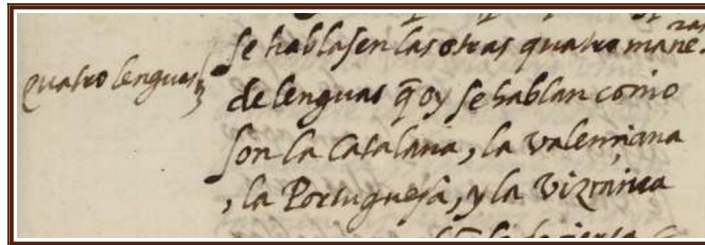 quatro lenguas
se hablasen las otras quatro maneras
de lenguas q̃ oy se hablan como
son la Catalana, la valenciana
, la Portuguesa, y la vizcaina